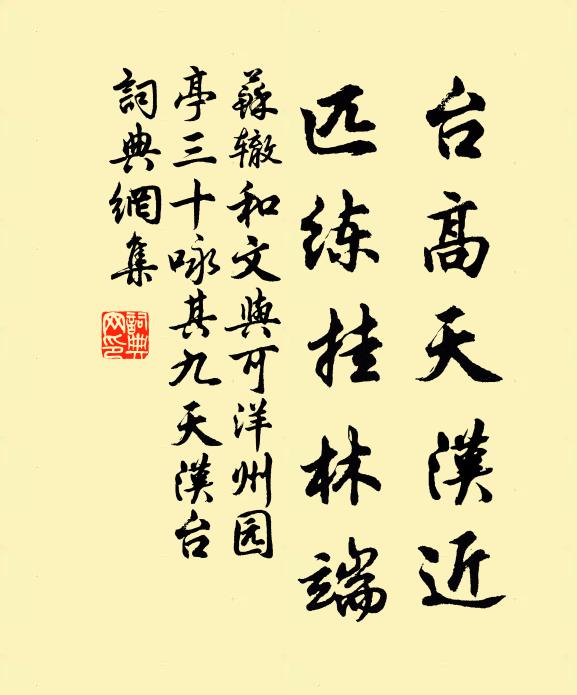 台高天漢近
匹练挂林端
蘇辙和文與可洋州园
亭三十咏其九天漢台
詞典網集
詞典
网印